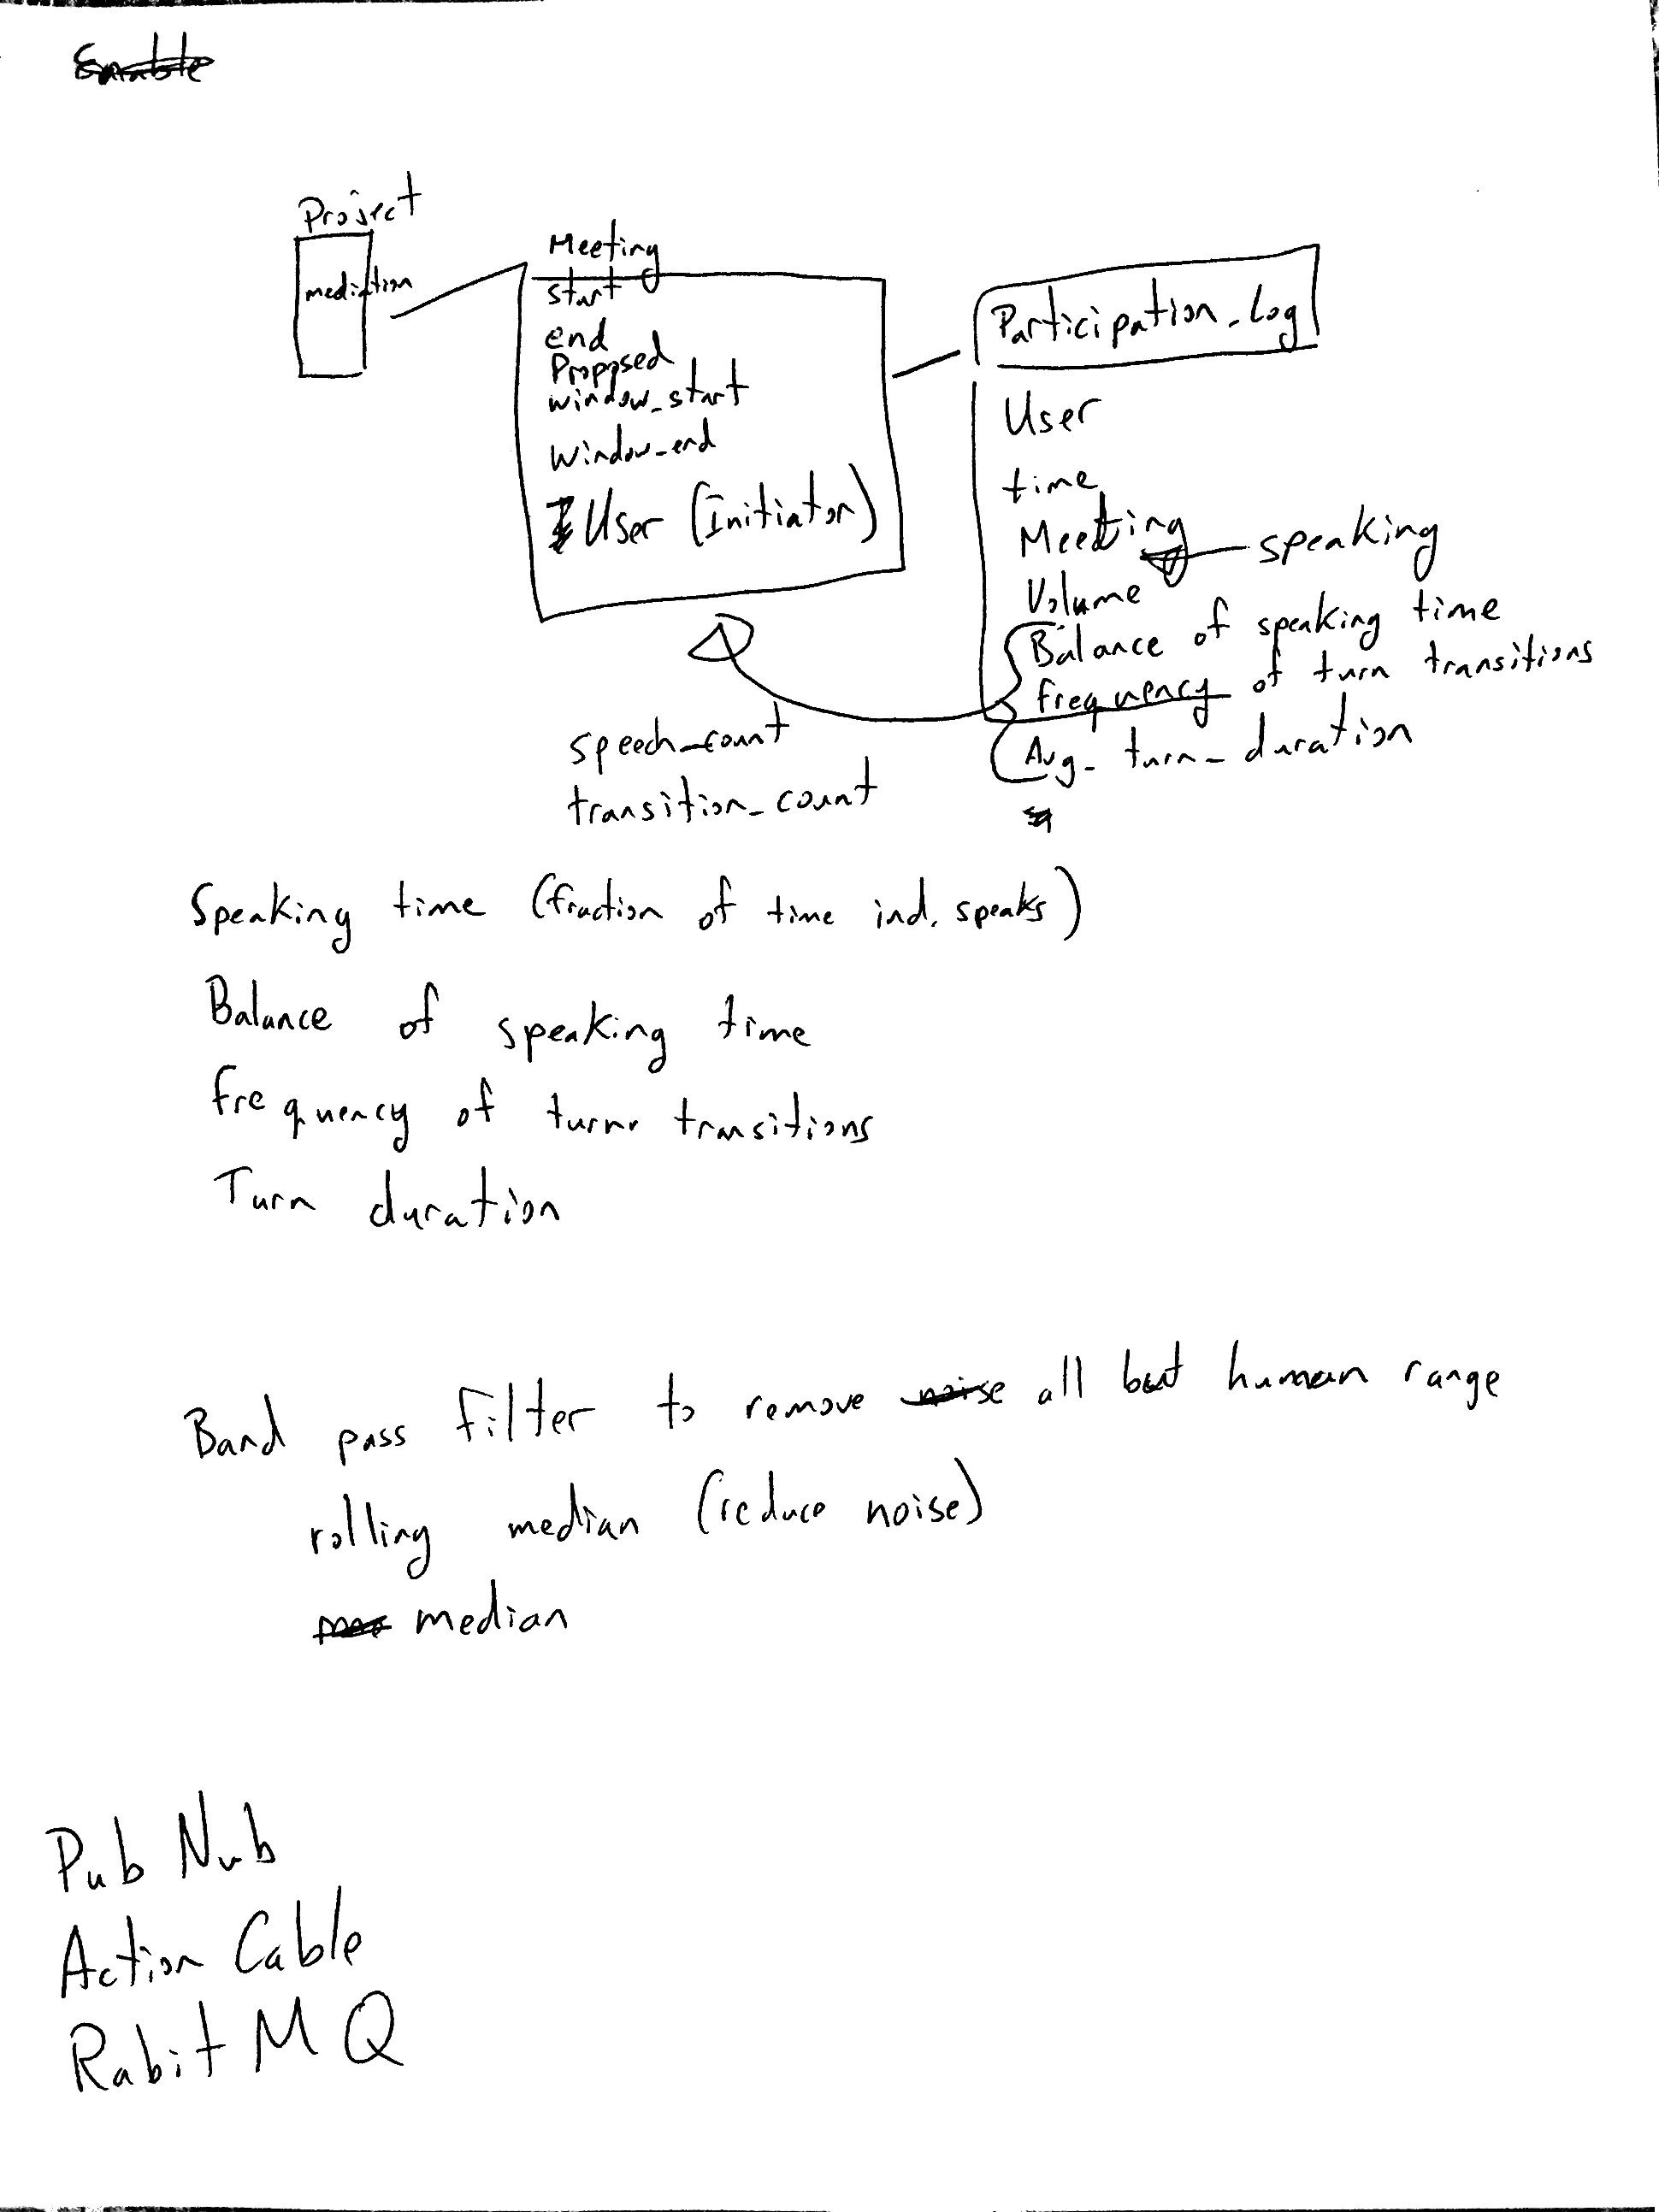 Project
mediation
Meeting
start
end
Proposed
window_start
window_end
User (Initiator)
Participation_Log
User
time
Meeting
speaking
Volume
Balance of speaking time
frequency of turn transitions
Avg_turn_duration
speech_count
transition_count
Speaking time (fraction of time ind. speaks)
Balance of speaking time
frequency of turn transitions
Turn duration
Band pass filter to remove noise all but human range
rolling median (reduce noise)
median
Pub Nub
Action Cable
Rabit MQ